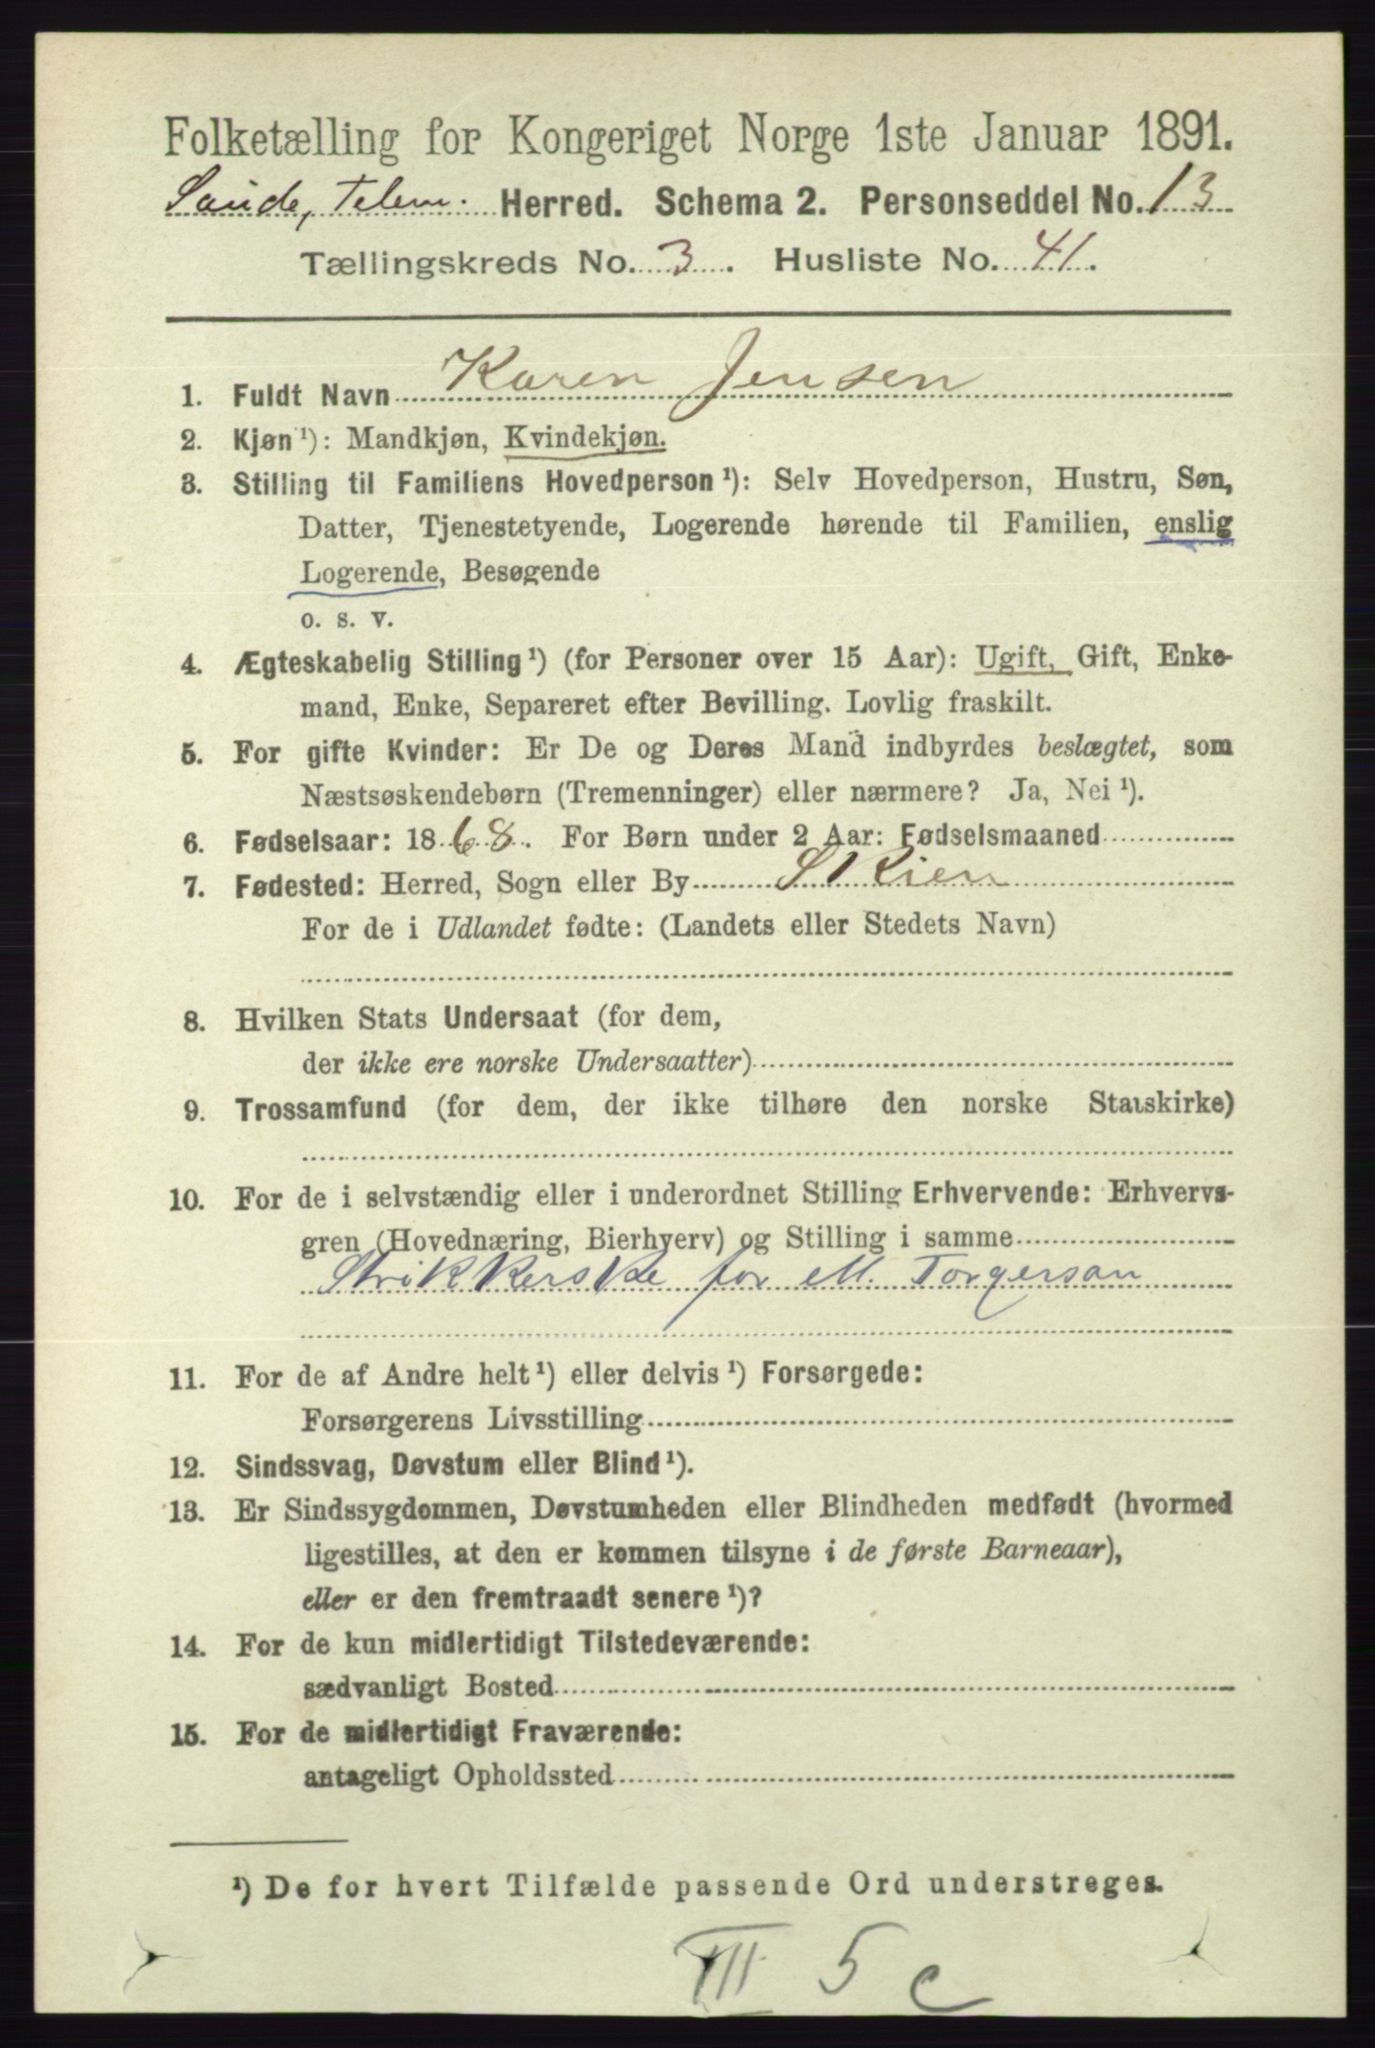 Folketælling for Kongeriget Norge 1ste Januar 1891.
Saude, Telem. Herred. Schema 2. Personseddel No. 13
Tællingskreds No. 3. Husliste No. 41.
1. Fuldt Navn Karen Jensen
2. Kjøn¹): Mandkjøn, Kvindekjøn.
3. Stilling til Familiens Hovedperson¹): Selv Hovedperson, Hustru, Søn,
Datter, Tjenestetyende, Logerende hørende til Familien, enslig
Logerende, Besøgende
o. s. v.
4. Ægteskabelig Stilling¹) (for Personer over 15 Aar): Ugift, Gift, Enke-
mand, Enke, Separeret efter Bevilling. Lovlig fraskilt.
5. For gifte Kvinder: Er De og Deres Mand indbyrdes beslægtet, som
Næstsøskendebørn (Tremenninger) eller nærmere? Ja, Nei¹).
6. Fødselsaar: 1868. For Børn under 2 Aar: Fødselsmaaned
7. Fødested: Herred, Sogn eller By Skien
For de i Udlandet fødte: (Landets eller Stedets Navn)
8. Hvilken Stats Undersaat (for dem,
der ikke ere norske Undersaatter)
9. Trossamfund (for dem, der ikke tilhøre den norske Statskirke)
10. For de i selvstændig eller i underordnet Stilling Erhvervende: Erhvervs-
gren (Hovednæring, Bierhverv) og Stilling i samme
Strikkerske for M. Torgersan
11. For de af Andre helt¹) eller delvis¹) Forsørgede:
Forsørgerens Livsstilling
12. Sindssvag, Døvstum eller Blind¹).
13. Er Sindssygdommen, Døvstumheden eller Blindheden medfødt (hvormed
ligestilles, at den er kommen tilsyne i de første Barneaar),
eller er den fremtraadt senere¹)?
14. For de kun midlertidigt Tilstedeværende:
sædvanligt Bosted
15. For de midlertidigt Fraværende:
antageligt Opholdssted
¹) De for hvert Tilfælde passende Ord understreges.
III 5 c